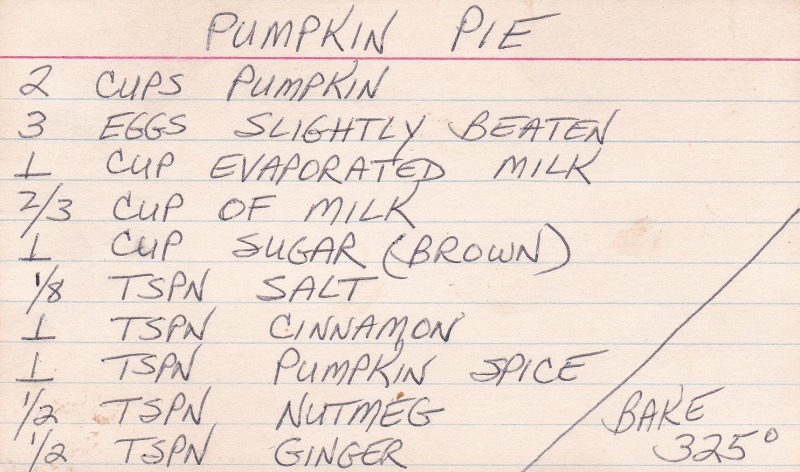 PUMPKIN PIE
2 CUPS PUMPKIN
3 EGGS SLIGHTLY BEATEN
1 CUP EVAPORATED MILK
2/3 CUP OF MILK
1 CUP SUGAR (BROWN)
1/8 TSPN SALT
1 TSPN CINNAMON
1 TSPN PUMPKIN SPICE
1/2 TSPN NUTMEG
1/2 TSPN GINGER
BAKE
325°